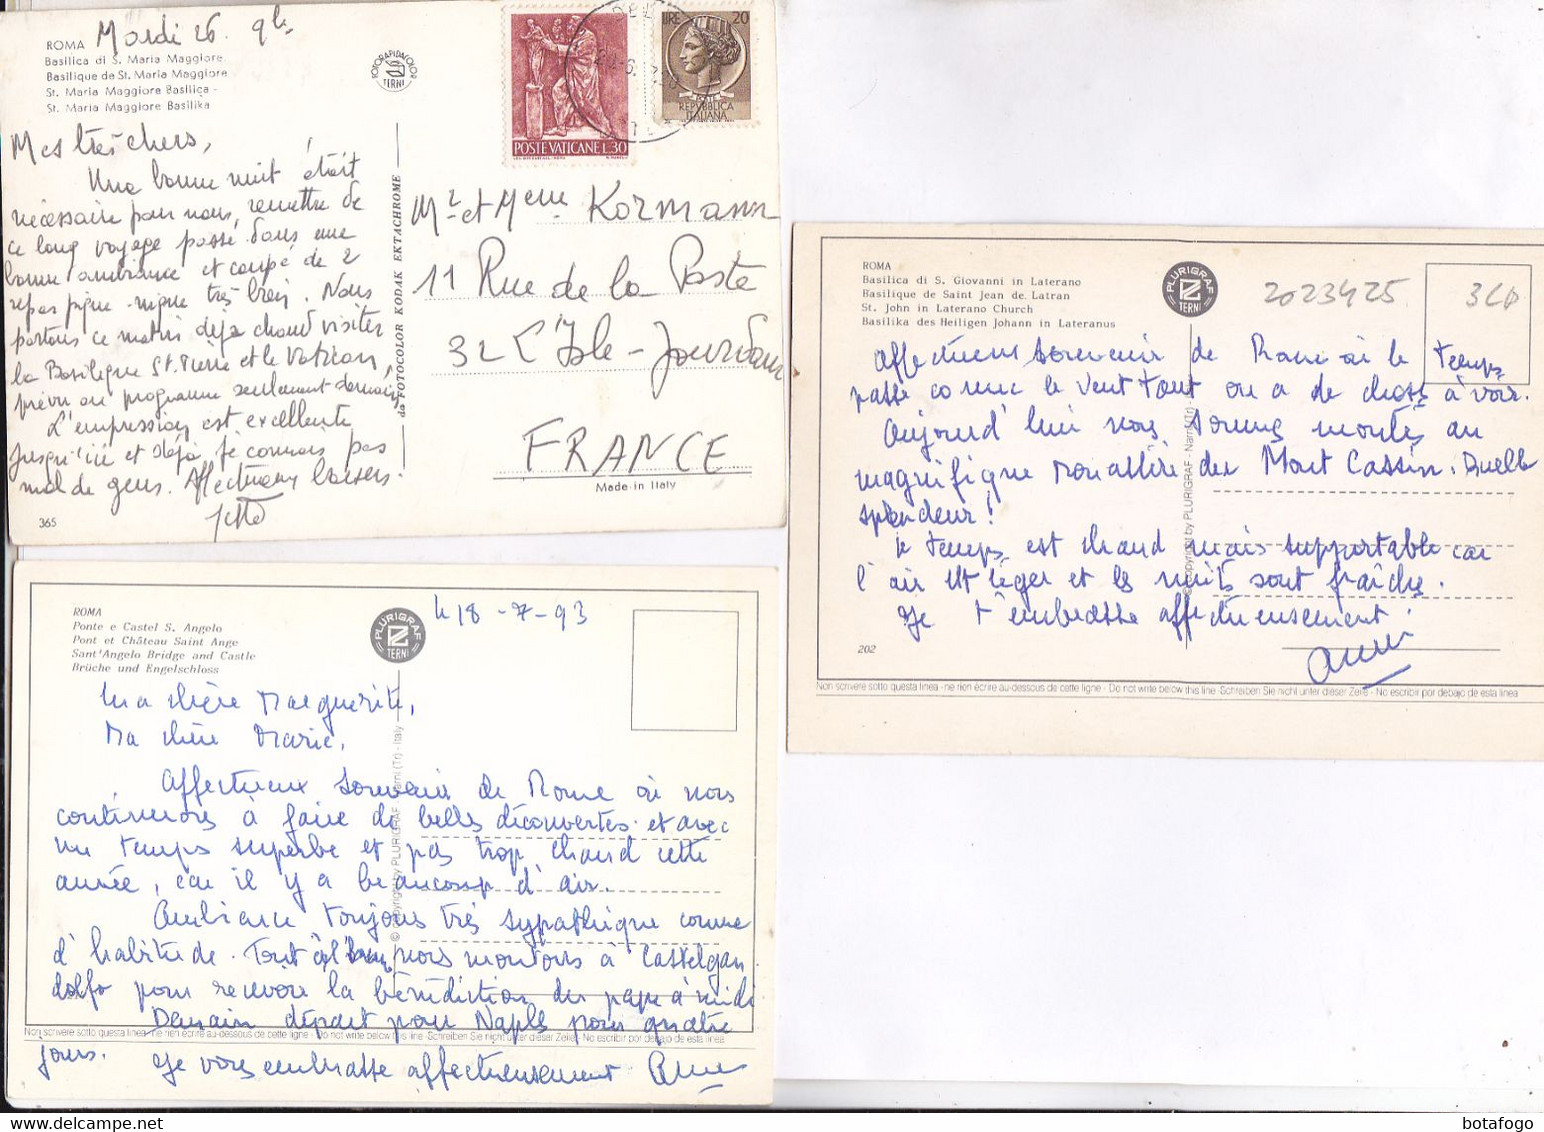 Mardi 26. 9h.
ROMA
Basilica di S. Maria Maggiore
Basilique de St. Maria Maggiore
St. Maria Maggiore Basilica -
St. Maria Maggiore Basilika
FOTORAPIDACOLOR
TERNI
POSTE VATICANE L.30
LIRE 20
REPVBBLICA
ITALIANA
Mes très chers,
Une bonne nuit était
nécessaire pour nous, remettre de
ce long voyage passé dans une
bonne ambiance et coupé de 2
repas pique-nique très bien. Nous
partons ce matin déjà chaud visiter
la Basilique St. Pierre et le Vatican,
prévu au programme seulement demain.
L'impression est excellente
jusqu'ici et déjà je connais pas
mal de gens. Affectueux baisers.
365
da FOTOCOLOR KODAK EKTACHROME
Mr et Mme Kormann
11 Rue de la Poste
32 L'Isle-Jourdain
FRANCE
Made in Italy
ROMA
Basilica di S. Giovanni in Laterano
Basilique de Saint Jean de Latran
St. John in Laterano Church
Basilika des Heiligen Johann in Lateranus
PLURIGRAF
TERNI
2023425
Affectueux souvenir de Rome où le temps
passe comme le vent tant on a de choses à voir.
Aujourd'hui nous sommes montés au
magnifique monastère du Mont Cassin. Quelle
splendeur!
Le temps est chaud mais supportable car
l'air est léger et les nuits sont fraîches.
Je t'embrasse affectueusement.
202
© Copyright by PLURIGRAF - Narni (Tr) - Italy
Non scrivere sotto questa linea - ne rien écrire au-dessous de cette ligne - Do not write below this line - Schreiben Sie nicht unter dieser Zeile - No escribir por debajo de esta linea
ROMA
Ponte e Castel S. Angelo
Pont et Château Saint Ange
Sant'Angelo Bridge and Castle
Brüche und Engelschloss
PLURIGRAF
TERNI
le 18-7-93
Ma chère Marguerite,
Ma chère Marie,
Affectueux souvenir de Rome où nous
continuons à faire de belles découvertes et avec
un temps superbe et pas trop chaud cette
année, car il y a beaucoup d'air.
Ambiance toujours très sympathique comme
d'habitude. Tout à l'heure nous montons à Castelgan
dolfo pour recevoir la bénédiction du pape à midi
Demain départ pour Naples pour quatre
jours. Je vous embrasse affectueusement
© Copyright by PLURIGRAF - Narni (Tr) - Italy
Non scrivere sotto questa linea - ne rien écrire au-dessous de cette ligne - Do not write below this line - Schreiben Sie nicht unter dieser Zeile - No escribir por debajo de esta linea
botafogo